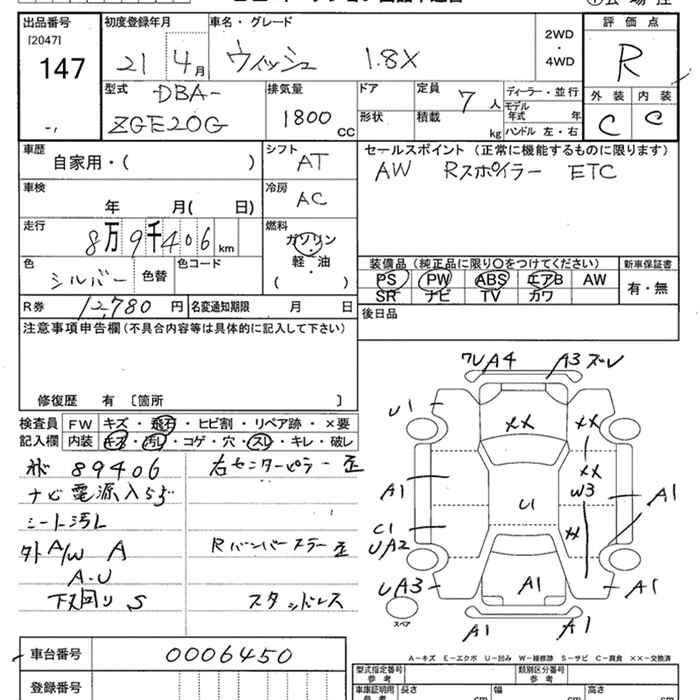 出品番号 初度登録年月 車名・グレード 評価点
[2047]
147 21 4月 ウィッシュ 1.8X 2WD・4WD R
型式 排気量 ドア 定員 ディーラー・並行 外装 内装
DBA- ZGE20G 1800cc 7人 C C
形状 積載 kg モデル年式 年 ハンドル 左・右
車歴 シフト セールスポイント (正常に機能するものに限ります)
自家用・( ) AT AW Rスポイラー ETC
車検 冷房
年 月( 日) AC
走行 燃料
8万9千406km ガソリン
軽・油
( ・ )
色 シルバー 色替 色コード
装備品(純正品に限り〇をつけてください) 新車保証書
PS PW ABS エアB AW 有・無
SR ナビ TV カワ
R券 12,780円 名変通知期限 月 日
後日品
注意事項申告欄(不具合内容等は具体的に記入して下さい)
修復歴 有 [箇所 ]
検査員 FW キズ・飛石・ヒビ割・リペア跡・×要
記入欄 内装 キズ・汚れ・コゲ・穴・スレ・キレ・破レ
89406 右センターピラー歪
ナビ電源入らず
シート汚れ
外A/W A Rバンパーステー歪
A・U
下回りS スタッドレス
ワレA4 A3ズレ
U1 XX XX
XX
A1 U1 W3 A1
C1 X
UA2
UA3 A1 A1
スペア
A1 A1
A−キズ E−エクボ U−凹み W−補修跡 S−サビ C−腐食 ××−交換済
車台番号 0006450
登録番号
型式指定番号 参考 類別区分番号 参考
車庫証明用 参考 長さ cm 幅 cm 高さ cm